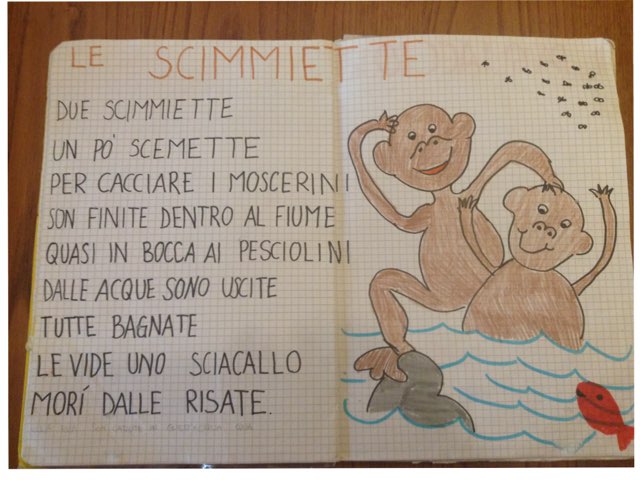 LE SCIMMIETTE
DUE SCIMMIETTE
UN PO' SCEMETTE
PER CACCIARE I MOSCERINI
SON FINITE DENTRO AL FIUME
QUASI IN BOCCA AI PESCIOLINI
DALLE ACQUE SONO USCITE
TUTTE BAGNATE
LE VIDE UNO SCIACALLO
MORÍ DALLE RISATE.